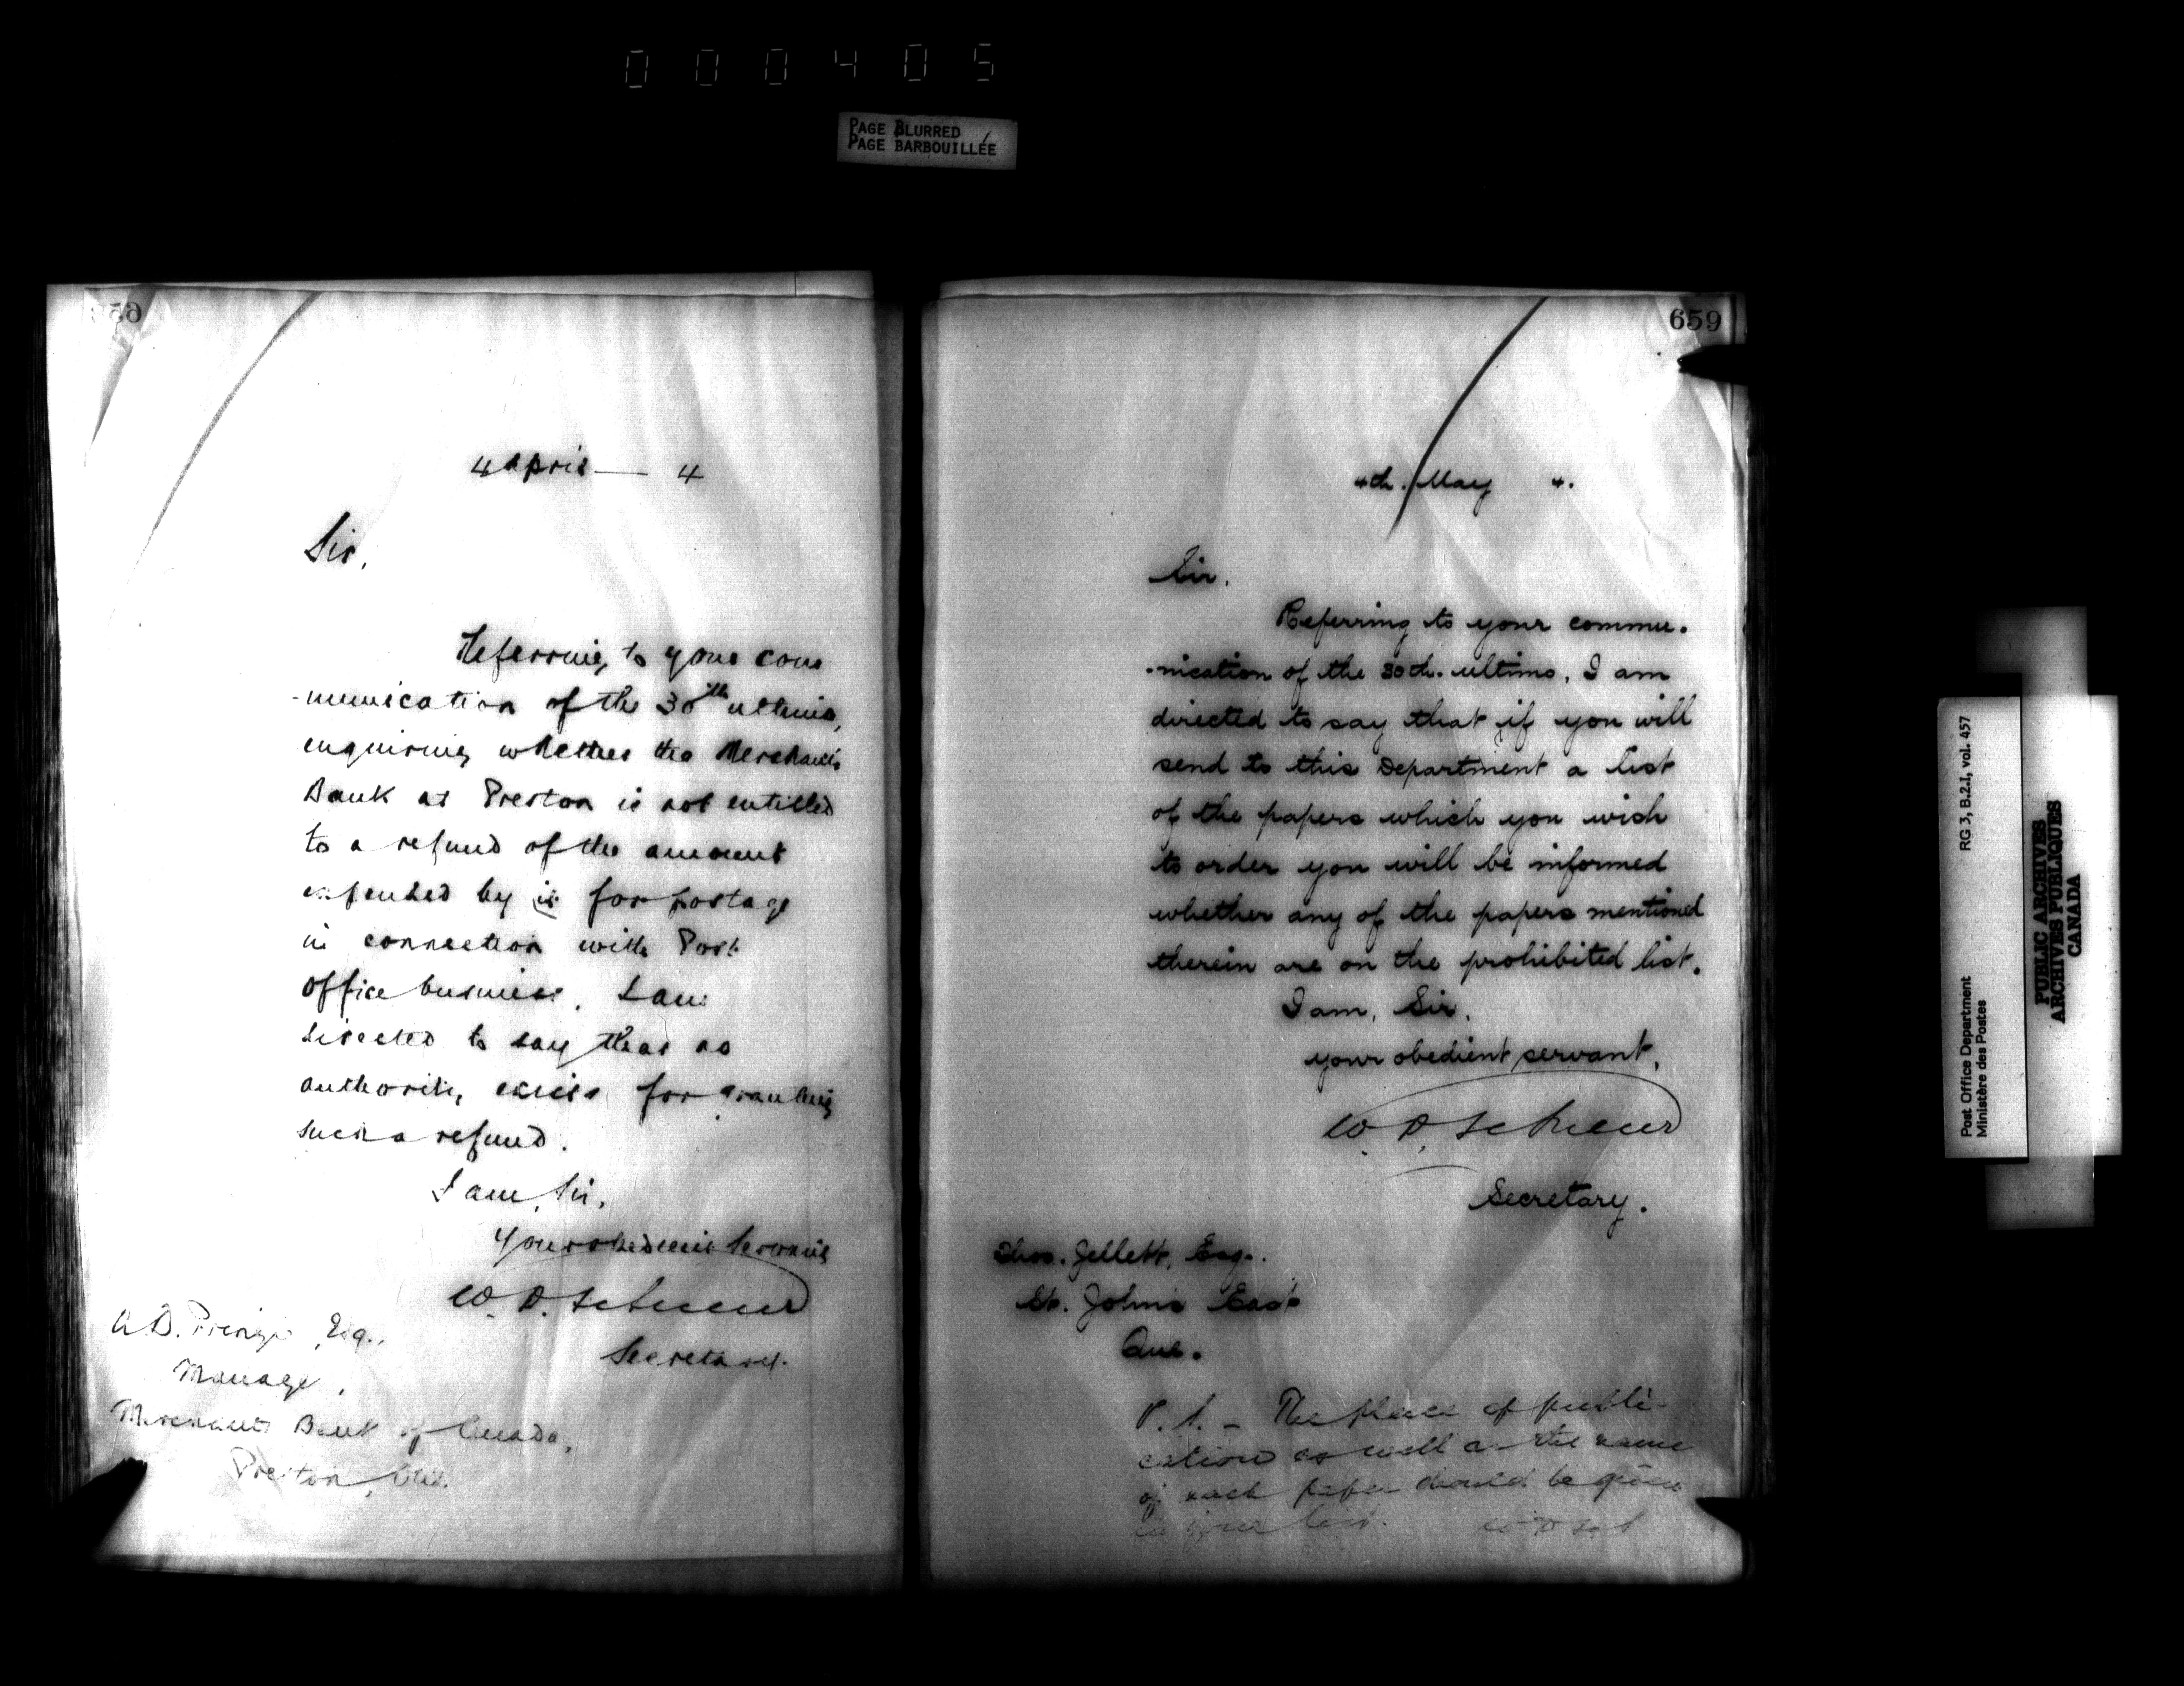 000405
PAGE BLURRED
PAGE BARBOUILLÉE
4 April — 4
Sir,
Referring to your com
-munication of the 30th ultimo,
enquiring whether the Merchants
Bank at Preston is not entitled
to a refund of the amount
expended by it for postage
in connection with Post
Office business, I am
directed to say that no
authority exists for granting
such a refund.
I am, Sir,
Your obedient Servant,
W. D.
Secretary.
A.D. Esq.,
Manager,
Merchants Bank of Canada,
Preston, Ont.
659
4th. May 4.
Sir.
Referring to your commu.
.nication of the 30th. ultimo, I am
directed to say that if you will
send to this Department a list
of the papers which you wish
to order you will be informed
whether any of the papers mentioned
therein are on the prohibited list.
I am, Sir,
your obedient servant,
W. D.
Secretary.
Thos. Jellett, Esq.
St. Johns East
Que.
P.S. – The place of publi-
cation as well as the name
of each paper should be given
in your list.
Post Office Department RG 3, B.2.1, vol. 457
Ministère des Postes
PUBLIC ARCHIVES
ARCHIVES PUBLIQUES
CANADA